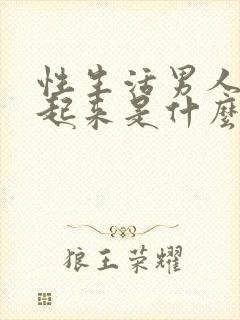 性生活男人
起来是什麽
狼王荣耀